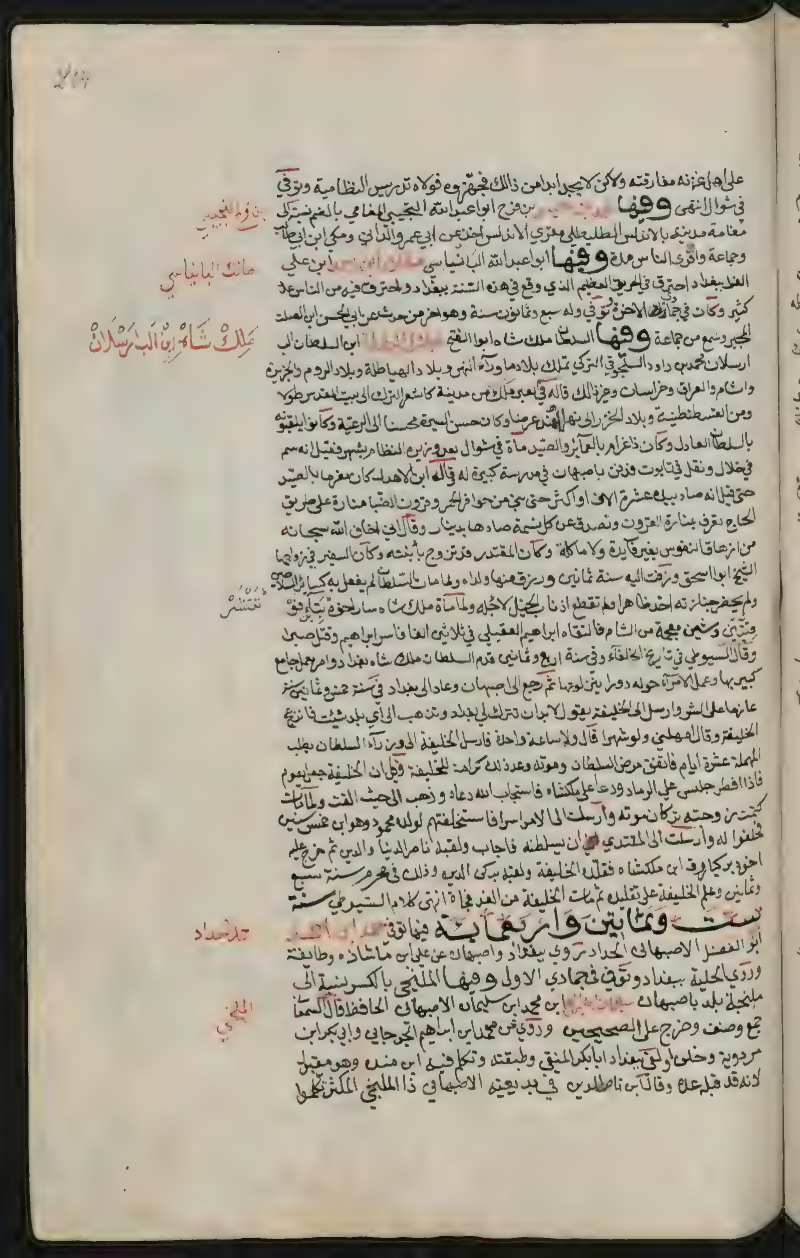 على اهل غزنه مفارقته ولاكن لايجد ابدا من ذالك فجهزوه فولاه تدريس النظامية وتوفي
في شوال انتهى وفيها بن فرج ابوا عبد الله التجيبي المغامي بالضم نسبة الى
مغامة مدينة بالاندلس الطليطلي مقري الاندلس اخذ عن ابي عمرو الداني ومكي ابن ابي طالب
وجماعة واقرى الناس مدة وفيها ابوا عبد الله البانياسي مالك ابن احمد ابن علي
الفرا ببغداد احترق في الحريق العظيم الذي وقع في هذه السنة ببغداد واحترق فيه من الناس عدد
كثير وكان في جمادى الاخرة توفي وله سبع وثمانون سنة وهو اخر من حدث عن ابي الحسن ابن الصلت
المجبر وسمع من جماعة وفيها السلطان ملك شاه ابوا الفتح ابن السلطان الب
ارسلان محمد بن داود السلجوقي التركي تملك بلاد ما وراء النهر وبلاد الهياطلة وبلاد الروم والجزيرة
والشام والعراق وخراسان وغير ذالك قاله في العبر ملك من مدينة كاشغر الترك الى بيت المقدس طولا
ومن القسطنطينية وبلاد الخزر الى نهر الهند عرضا وكان حسن السيرة محسنا الى الرعية وكانوا يلقبونه
بالسلطان العادل وكان ذا غرام بالعمائر والصيد مات في شوال بعد وزيره النظام بشهر فقيل انه سم
في خلال ونقل في تابوت ودفن باصبهان في مدرسة كبيرة له قاله ابن الاهدل كان مغرما بالصيد
حتى قيل انه صاد بيده عشرة الاف او اكثر حتى بنى من حوافر الحمر وقرون الظبا منارة على طريق
الحاج تعرف بمنارة القرون وتصدق عن كل نسمة صادها بدينار وقال اني اخاف الله سبحانه
من ازهاق النفوس بغير فايدة ولا ماكلة وكان المقتدر قد تزوج بابنته وكان السفير في زواجها
الشيخ ابوا اسحق وزفت اليه سنة ثمانين ورزق منها ولدا ولما مات السلطان لم يفعل به كسائر السلاطين
ولم يحضر جنازته احد ظاهرا ولم تقطع اذناب الخيل لاجله ولما مات ملك شاه سار اخوه
من الشام فالتقاه ابراهيم العقيلي في ثلاثين الفا فاسر ابراهيم وقتل صبرا
وقال السيوطي في تاريخ الخلفاء وفي سنة اربع وثمانين قدم السلطان ملك شاه بغداد وامر بعمل جامع
كبير بها وعمل الامراء حوله دورا ينزلونها ثم رجع الى اصبهان وعاد الى بغداد في سنة خمس وثمانين سنة
عازما على الشر وارسل الى الخليفة يقول لا بد ان تترك لي بغداد وتذهب الى اي بلد شئت فانزعج
الخليفة وقال امهلني ولو شهرا قال ولا ساعة واحدة فارسل الخليفة الى وزراء السلطان يطلب
المهلة عشرة ايام فاتفق مرض السلطان وموته وعد ذلك كرامة للخليفة وقيل ان الخليفة جعل يصوم
فاذا افطر جلس على الرماد ودعا على ملكشاه فاستجاب الله دعاه وذهب الى حيث القت ولما مات
كتمت زوجته تركان موته وارسلت الى الامرا سرا فاستخلفتهم لولده محمود وهو ابن خمس سنين
فحلفوا له وارسلت الى المقتدي ان يسلطنه فاجاب ولقبه ناصر الدنيا والدين ثم خرج عليه
اخوه بركياروق ابن ملكشاه فقلده الخليفة ولقبه بركن الدين وذلك في محرم سنة سبع
وثمانين وعلم الخليفة على تقليده ثم مات الخليفة من الغد فجاة انتهى كلام السيوطي سنة
ست وثمانين واربعماية فيها توفي
ابو الفضل الاصبهاني الحداد روي ببغداد واصبهان عن علي ابن ماشاذه وطايفة
وروي الحلية ببغداد وتوفي في جمادي الاول وفيها الملنجي بالكسر نسبة الى
ملنجة بلد باصبهان ابن محمد ابن سليمان الاصبهاني الحافظ قال السمعاني
جمع وصنف وخرج على الصحيحين وروي عن محمد ابن ابراهيم الجرجاني وابي بكر ابن
مردوية وخلق ولقي ببغداد ابا بكر المنقي وطبقته وتكلم فيه ابن منده وهو مقبول
لانه قد قبله عدة وقال ابن ناصر الدين في بديعيته الاصبهاني ذا الملنجي المكثر تكلموا
مالك البانياسي
ملك شاه ابن الب ارسلان
تتش
حمد حداد
الملنجي